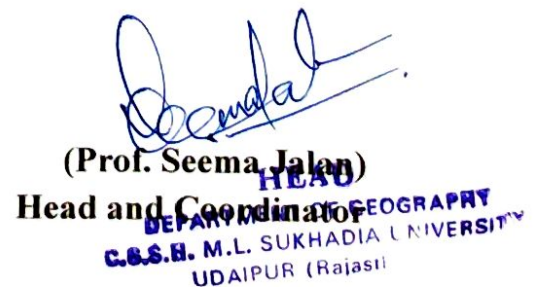 Seema Jalan
(Prof. Seema Jalan)
HEAD
Head and Coordinator
DEPARTMENT OF GEOGRAPHY
C.S.S.H. M.L. SUKHADIA UNIVERSITY
UDAIPUR (Rajast